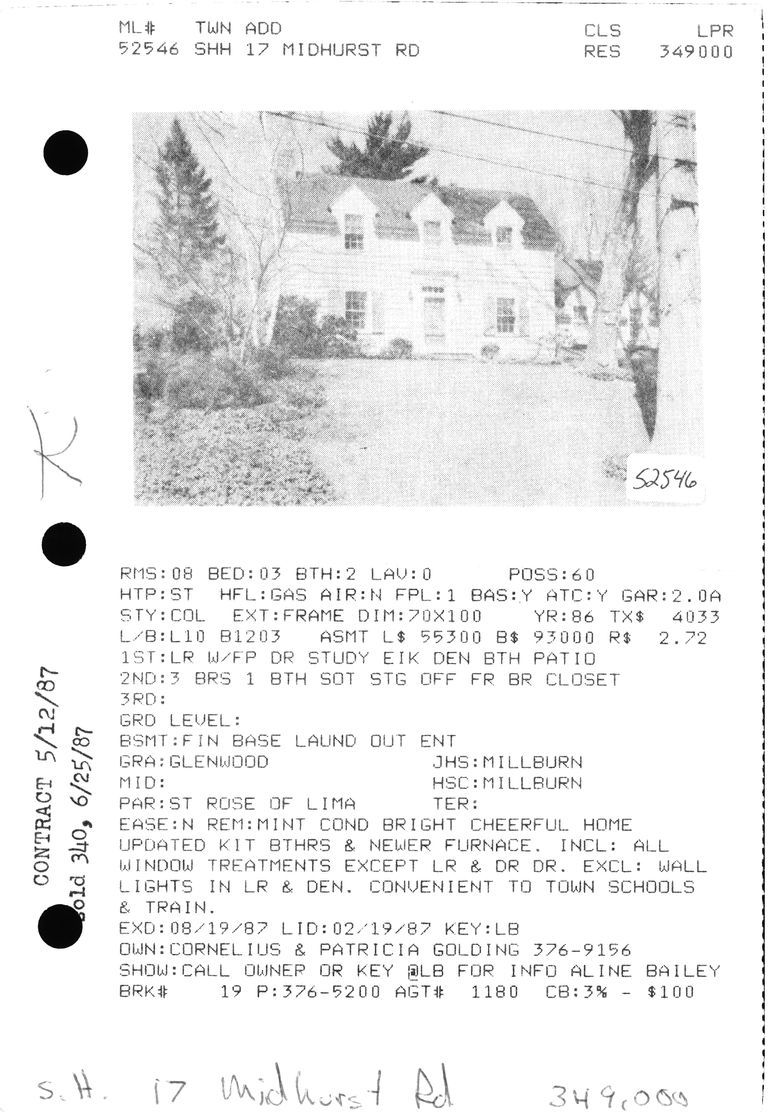 ML# TWN ADD CLS LPR
52546 SHH 17 MIDHURST RD RES 349000
52546
RMS:08 BED:03 BTH:2 LAV:0 POSS:60
HTP:ST HFL:GAS AIR:N FPL:1 BAS:Y ATC:Y GAR:2.0A
STY:COL EXT:FRAME DIM:70X100 YR:86 TX$ 4033
L/B:L10 B1203 ASMT L$ 55300 B$ 93000 R$ 2.72
1ST:LR W/FP DR STUDY EIK DEN BTH PATIO
2ND:3 BRS 1 BTH SOT STG OFF FR BR CLOSET
3RD:
GRD LEVEL:
BSMT:FIN BASE LAUND OUT ENT
GRA:GLENWOOD JHS:MILLBURN
MID: HSC:MILLBURN
PAR:ST ROSE OF LIMA TER:
EASE:N REM:MINT COND BRIGHT CHEERFUL HOME
UPDATED KIT BTHRS & NEWER FURNACE. INCL: ALL
WINDOW TREATMENTS EXCEPT LR & DR DR. EXCL: WALL
LIGHTS IN LR & DEN. CONVENIENT TO TOWN SCHOOLS
& TRAIN.
EXD:08/19/87 LID:02/19/87 KEY:LB
OWN:CORNELIUS & PATRICIA GOLDING 376-9156
SHOW:CALL OWNER OR KEY @LB FOR INFO ALINE BAILEY
BRK# 19 P:376-5200 AGT# 1180 CB:3% - $100
CONTRACT 5/12/87
Sold 340, 6/25/87
S.H. 17 Midhurst Rd 349,000